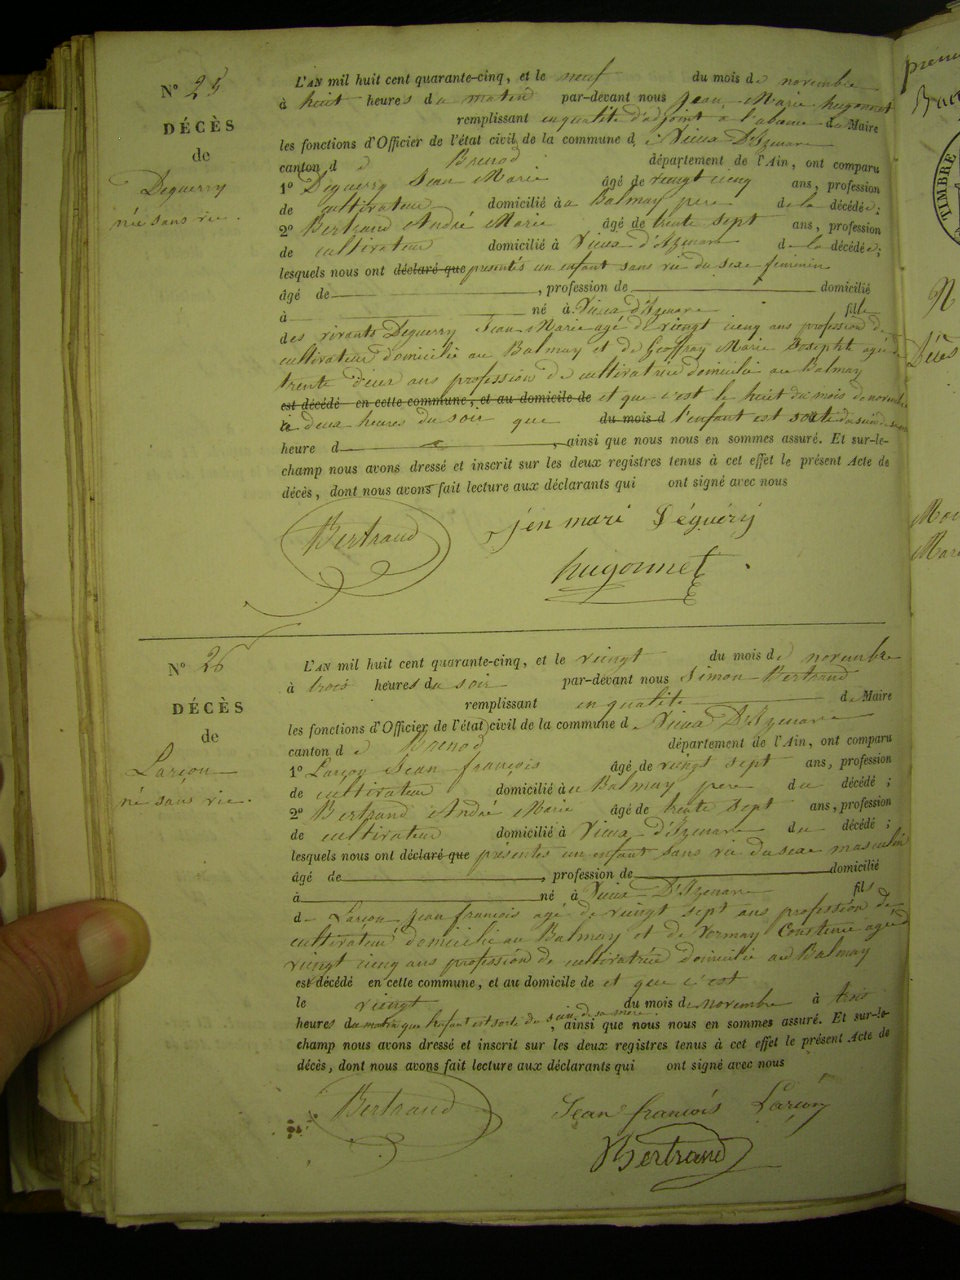 N° 25
DÉCÈS
de
Deguerry
née sans vie.
L'AN mil huit cent quarante-cinq, et le neuf du mois de novembre
à huit heures du matin par-devant nous Jean Marie hugonnet
remplissant en qualité d'adjoint à l'absence du Maire
les fonctions d'Officier de l'état civil de la commune de Vieux D'Izenave
canton d e Brenod département de l'Ain, ont comparu
1° Deguerry Jean Marie âgé de vingt cinq ans, profession
de cultivateur domicilié au Balmay père de la décédée;
2° Bertrand André Marie âgé de trente sept ans, profession
de cultivateur domicilié à Vieux d'Izenave d la décédée;
lesquels nous ont déclaré que présentés un enfant sans vie du sexe féminin
âgé de , profession de domicilié
à né à Vieux d'Izenave fille
des vivants Deguerry Jean Marie agé de vingt cinq ans profession de
cultivateur domicilié au Balmay et de Geoffray Marie Josephte agée de
trente deux ans profession de cultivatrice domiciliée au Balmay
est décédé en cette commune, et au domicile de et que c'est le huit du mois de novembre
à deux heures du soir que du mois d l'enfant est sorte du sein de sa mère
heure d , ainsi que nous nous en sommes assuré. Et sur-le-
champ nous avons dressé et inscrit sur les deux registres tenus à cet effet le présent Acte de
décès, dont nous avons fait lecture aux déclarants qui ont signé avec nous
Bertrand jen mari Déguéry
hugonnet
N° 26
DÉCÈS
de
Larçon
né sans vie.
L'AN mil huit cent quarante-cinq, et le vingt du mois de novembre
à trois heures du soir par-devant nous Simon Bertrand
remplissant en qualité de Maire
les fonctions d'Officier de l'état civil de la commune d e Vieux D'Izenave
canton d e Brenod département de l'Ain, ont comparu
1° Larçon Jean françois âgé de vingt sept ans, profession
de cultivateur domicilié au Balmay père du décédé;
2° Bertrand André Marie âgé de trente sept ans, profession
de cultivateur domicilié à Vieux d'Izenave du décédé;
lesquels nous ont déclaré que présentés un enfant sans vie du sexe masculin
âgé de , profession de domicilié
à né à Vieux D'Izenave fils
de Larçon Jean françois agé de vingt sept ans profession de
cultivateur domicilié au Balmay et de Constance agée de
vingt cinq ans profession de cultivatrice domicilié au Balmay
est décédé en cette commune, et au domicile de et que c'est
le vingt du mois de novembre à trois
heures du matin que l'enfant est sorte du sein de sa mère, ainsi que nous nous en sommes assuré. Et sur-le-
champ nous avons dressé et inscrit sur les deux registres tenus à cet effet le présent Acte de
décès, dont nous avons fait lecture aux déclarants qui ont signé avec nous
Bertrand Jean francois Larçon
Bertrand
TIMBRE